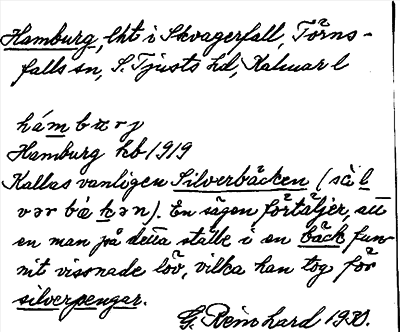 Hamburg, lht i Skvagerfall, Törns-
falls sn, S. Tjusts hd, Kalmar l
há m b u r j
Hamburg hb 1919
Kallas vanligen Silverbäcken (sì l
v ə r b á k ə n). En sägen förtäljer, att
en man på detta ställe i en bäck fun-
nit vissnade löv, vilka han tog för
silverpengar.
G. Reinhard 1930.